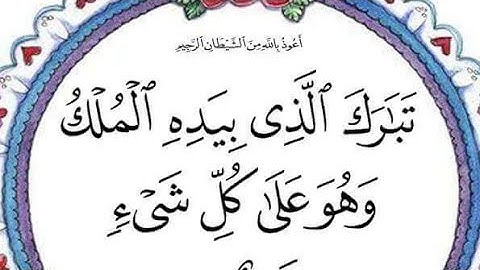 أَعُوذُ بِاللَّهِ مِنَ ٱلشَّيْطَانِ ٱلرَّجِيمِ
تَبَٰرَكَ ٱلَّذِى بِيَدِهِ ٱلْمُلْكُ
وَهُوَ عَلَىٰ كُلِّ شَىْءٍ